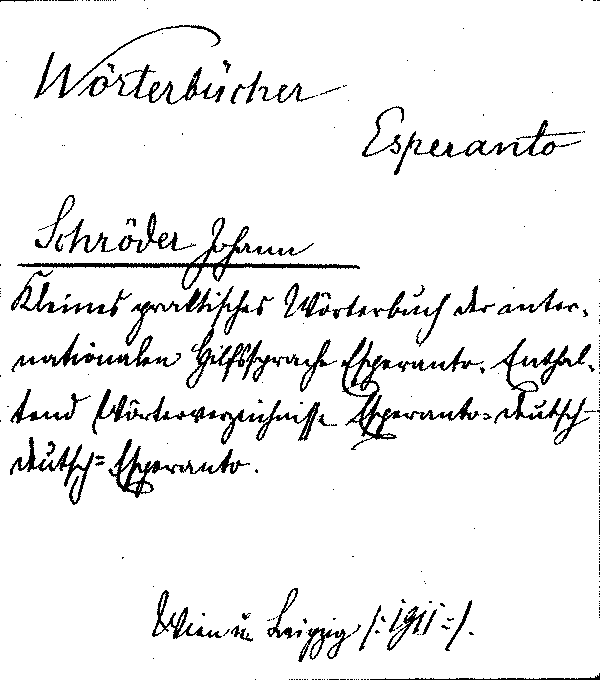 Wörterbücher
Esperanto
Schröder Johann
Kleines praktisches Wörterbuch der inter-
nationalen Hilfssprache Esperanto. Enthal-
tend Wörterverzeichnisse Esperanto=deutsch
deutsch=Esperanto.
Wien u. Leipzig /:1911:/.